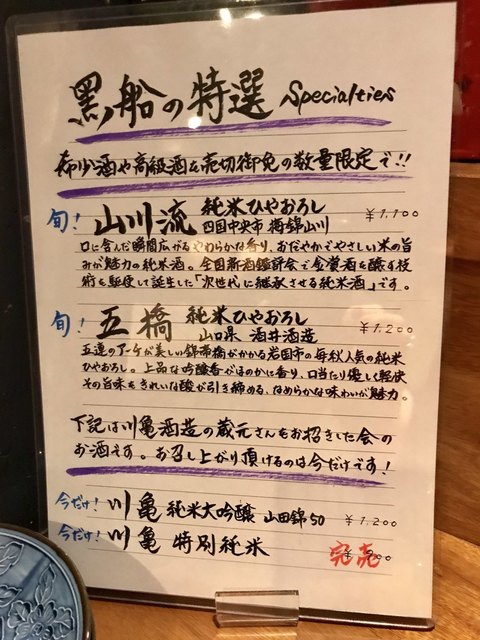 黒船の特選 Specialties
希少酒や高級酒を売切御免の数量限定で!!
旬! 山川流 純米ひやおろし
四国中央市 梅錦山川 ¥1,100
口に含んだ瞬間広がるやわらかな香り、おだやかでやさしい米の旨
みが魅力の純米酒。全国新酒鑑評会で金賞酒を醸す技
術を駆使して誕生した「次世代に継承させる純米酒」です。
旬! 五橋 純米ひやおろし
山口県 酒井酒造 ¥1,200
五連のアーチが美しい錦帯橋がかかる岩国市の毎秋人気の純米
ひやおろし。上品な吟醸香がほのかに香り、口当たり優しく軽快
その旨味をきれいな酸が引き締める、なめらかな味わいが魅力。
下記は川亀酒造の蔵元さんをお招きした会の
お酒です。お召し上がり頂けるのは今だけです!
今だけ! 川亀 純米大吟醸 山田錦50 ¥1,200
今だけ! 川亀 特別純米 完売